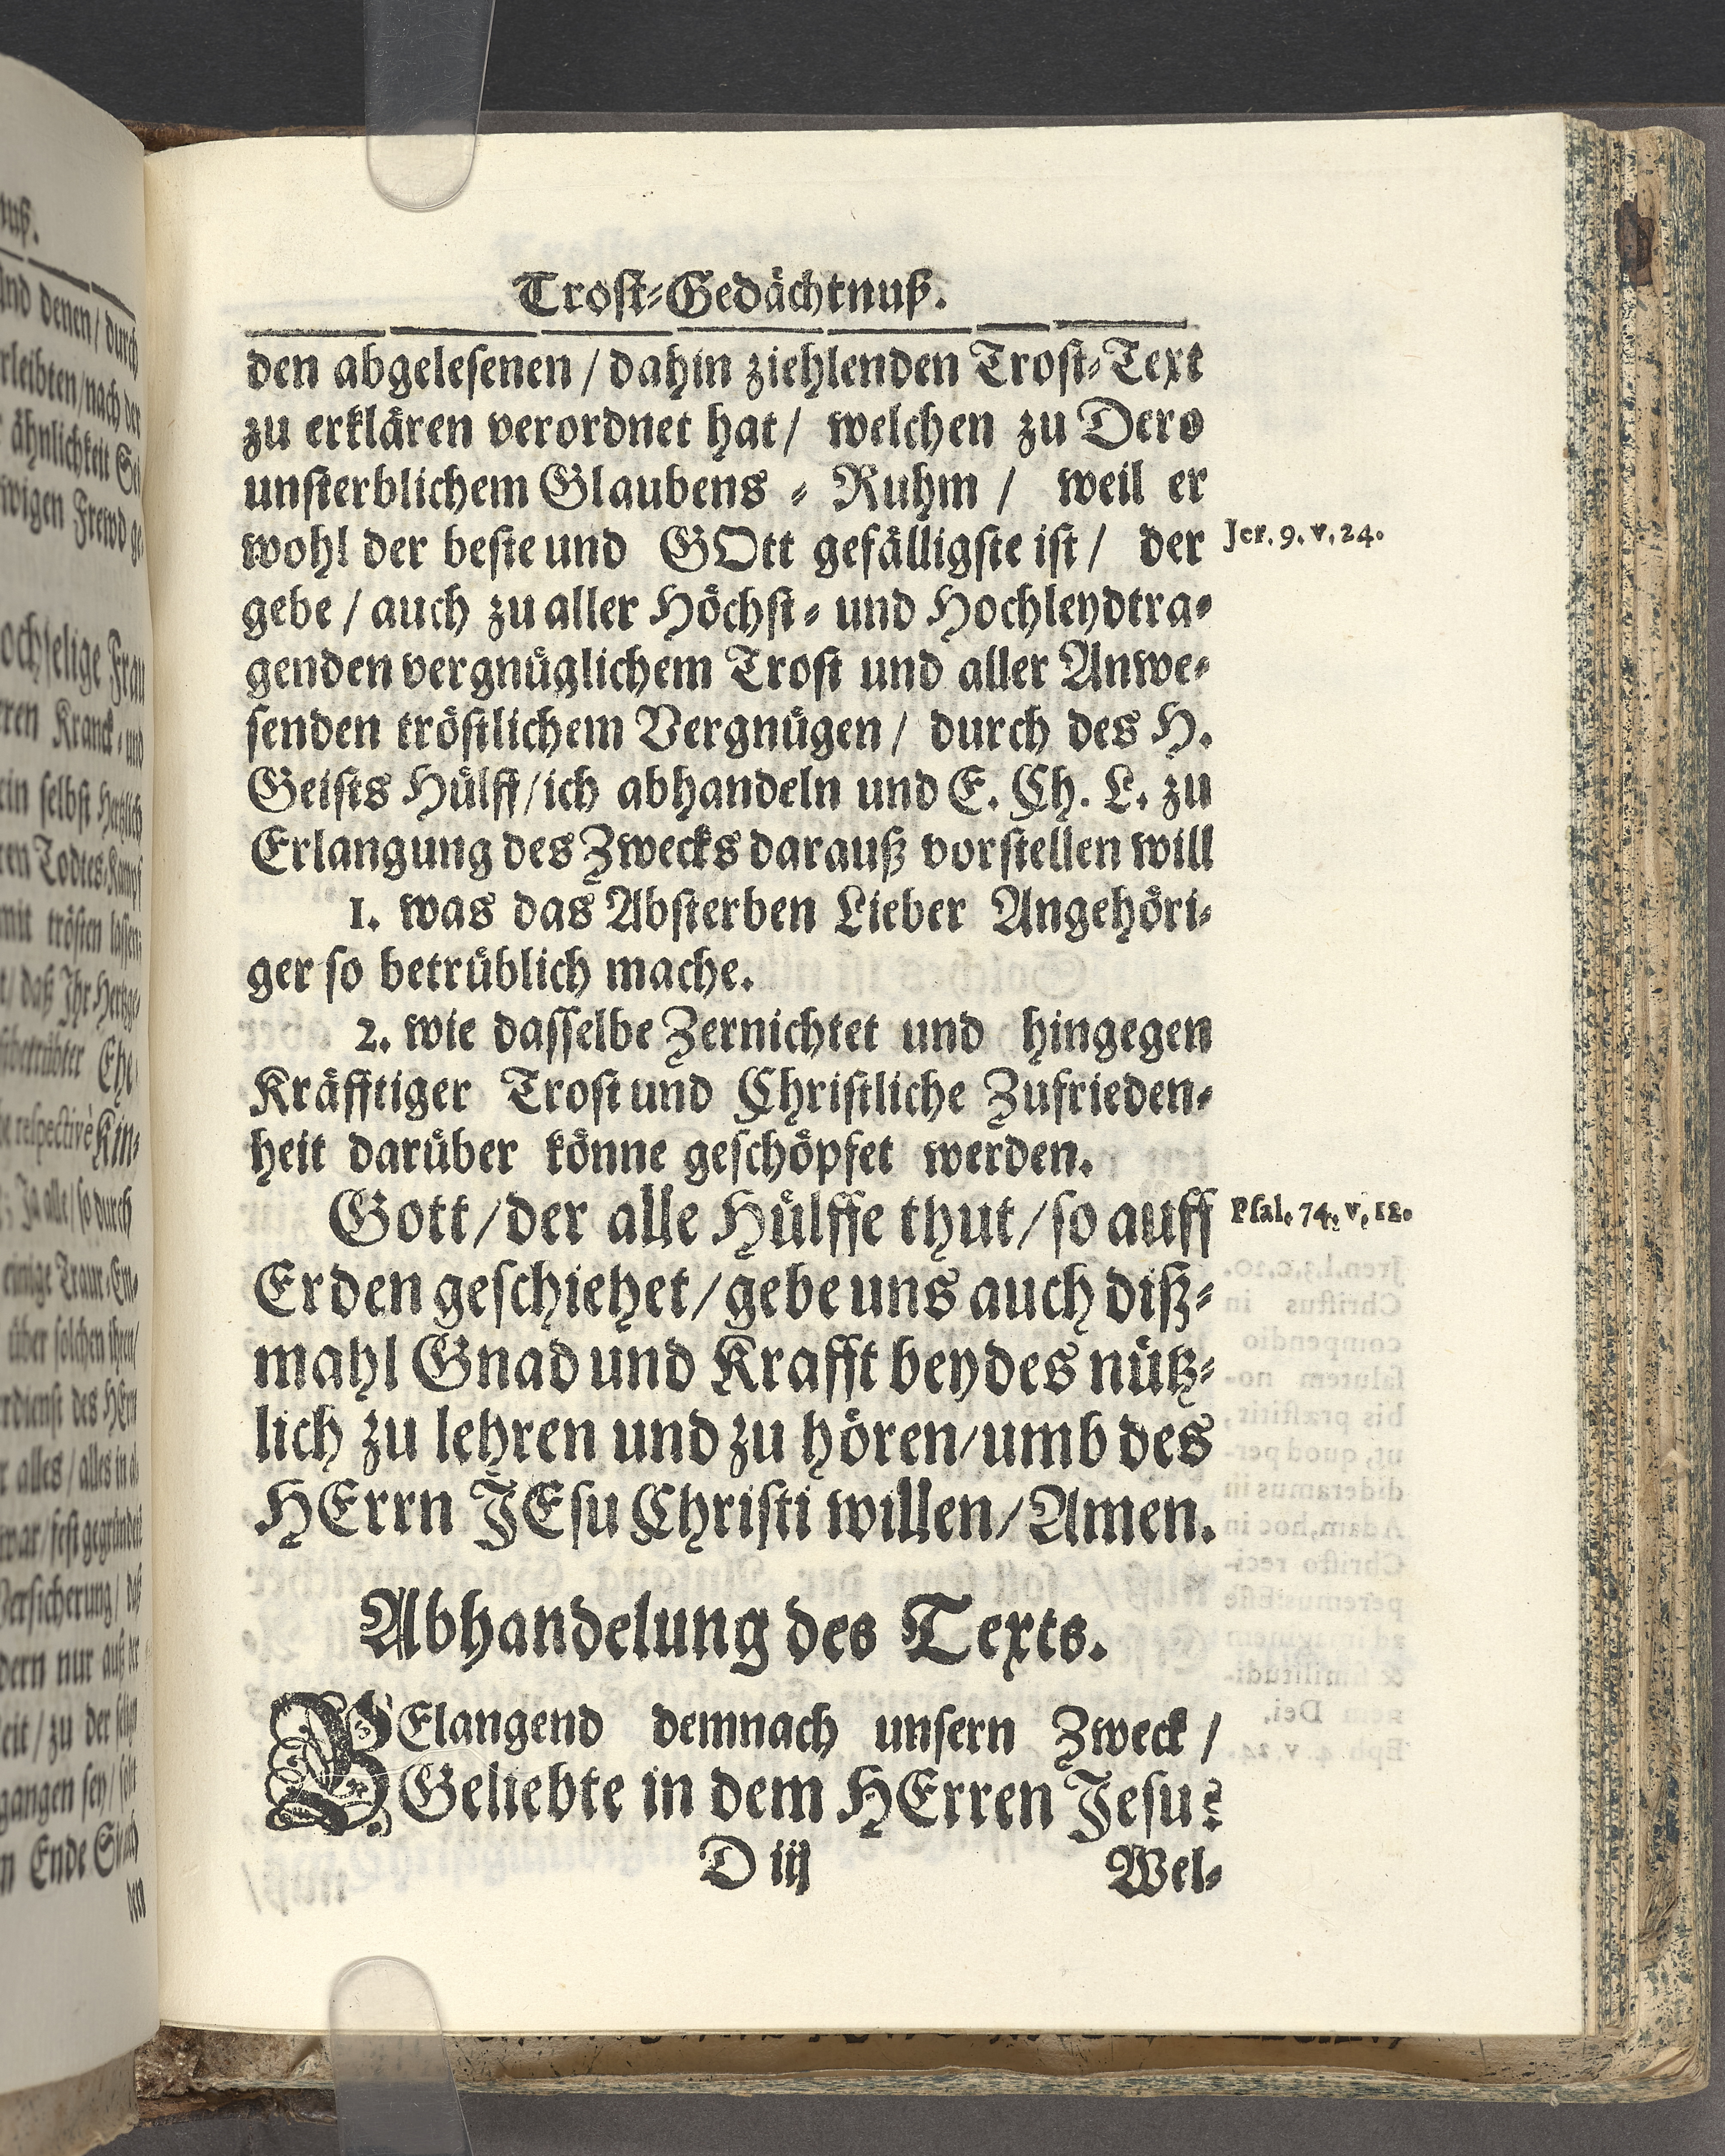 Trost-Gedächtnuß.
den abgelesenen / dahin ziehlenden Trost-Text
zu erklären verordnet hat / welchen zu Dero
unsterblichem Glaubens - Ruhm / weil er
wohl der beste und GOtt gefälligste ist / der
Jer. 9. v. 24.
gebe / auch zu aller Höchst- und Hochleydtra-
genden vergnüglichem Trost und aller Anwe-
senden tröstlichem Vergnügen / durch des H.
Geists Hülff / ich abhandeln und E. Ch. L. zu
Erlangung des Zwecks darauß vorstellen will
1. was das Absterben Lieber Angehöri-
ger so betrüblich mache.
2. wie dasselbe Zernichtet und hingegen
Kräfftiger Trost und Christliche Zufrieden-
heit darüber könne geschöpfet werden.
Gott / der alle Hülffe thut / so auff
Psal. 74. v. 12.
Erden geschiehet / gebe uns auch diß-
mahl Gnad und Krafft beydes nütz-
lich zu lehren und zu hören / umb des
HErrn JEsu Christi willen / Amen.
Abhandelung des Texts.
BElangend demnach unsern Zweck /
Geliebte in dem HErren Jesu:
D iij
Wel-